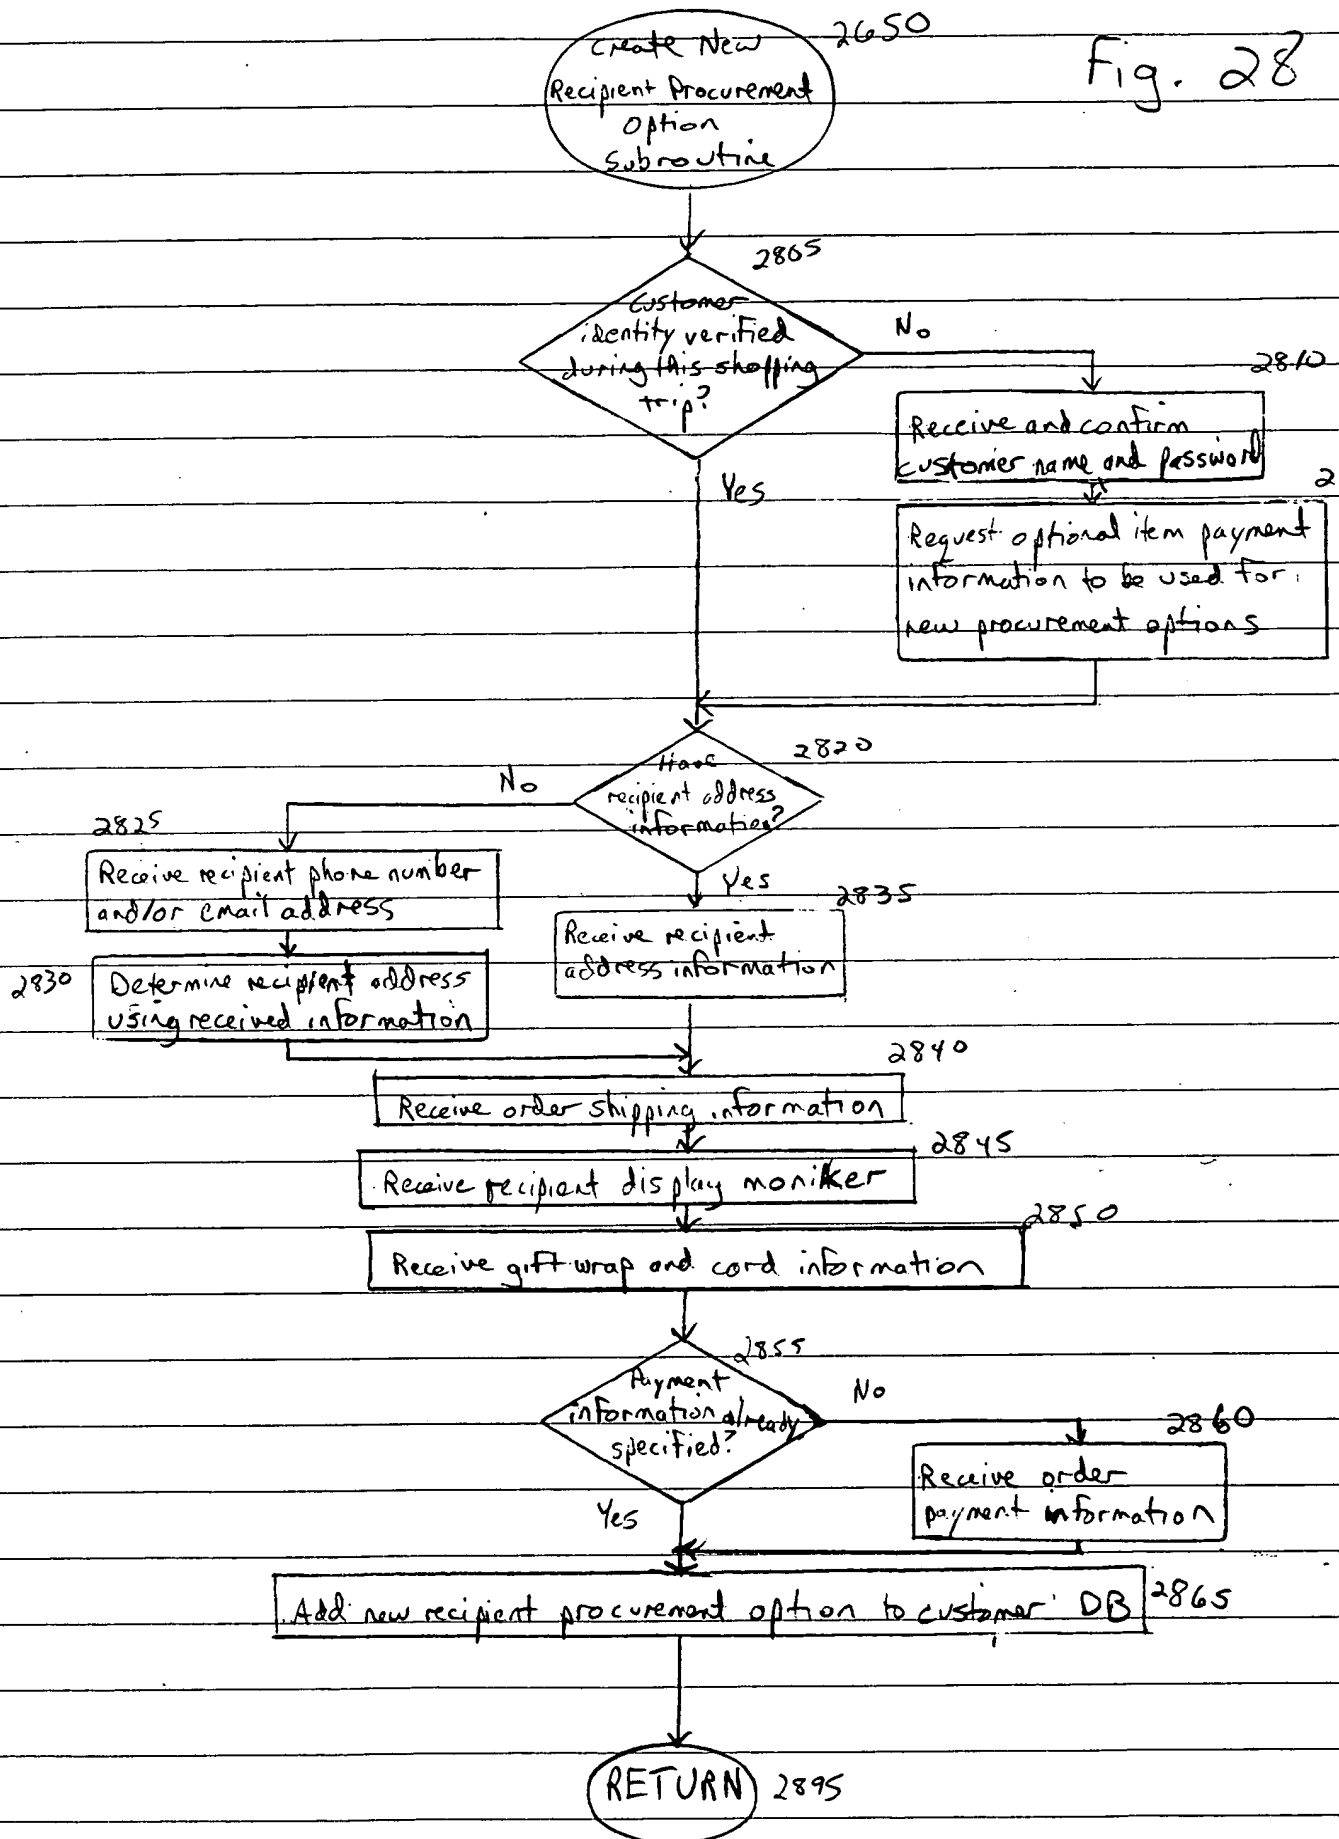 Fig. 28
2650
Create New
Recipient Procurement
Option
Subroutine
2805
Customer
identity verified
during this shopping
trip?
No
Yes
2810
Receive and confirm
customer name and password
2
Request optional item payment
information to be used for
new procurement options
2820
Have
recipient address
information?
No
Yes
2825
Receive recipient phone number
and/or email address
2830
Determine recipient address
using received information
2835
Receive recipient
address information
2840
Receive order shipping information
2845
Receive recipient display moniker
2850
Receive gift wrap and card information
2855
Payment
information already
specified?
No
Yes
2860
Receive order
payment information
Add new recipient procurement option to customer DB
2865
RETURN
2895